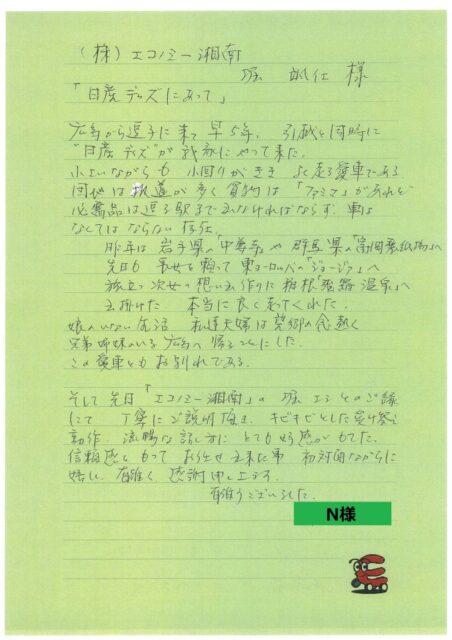 (株)エコノミー湘南
堀 様
「日産デイズにあって」
広島から逗子に来て早5年、引越と同時に
"日産デイズ"が我家にやって来た。
小よいながらも 小回りがきき よく走る愛車である。
団地は坂道が多く 買物は「ファミマ」があれど
必需品は逗子駅まで出なければならず、車は
なくてはならない存在。
昨年は 岩手県の「中尊寺」や群馬県の「富岡製紙場」へ
先日も 東ヨーロッパの「ジョージア」へ
旅立つ次女の想い出作りに 箱根「温泉」へ
出掛けた。 本当に良く走ってくれた。
娘のいない生活 私達夫婦は望郷の念熱く
兄弟姉妹のいる広島へ帰ることにした。
この愛車ともお別れである。
そして先日「エコノミー湘南」の堀 とのご縁
にて 丁寧にご説明頂き、キビキビとした受け答え
動作、流暢な話し方に とても好感がもてた。
信頼感をもって お任せ出来た事 初対面ながらに
嬉しく、有難く 感謝申し上げます。
有難うございました。
N様